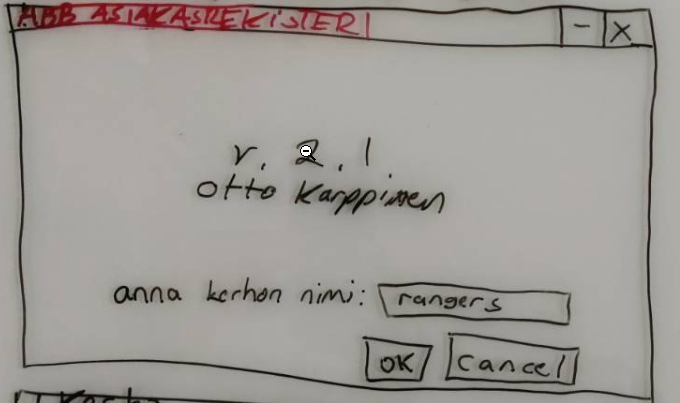 ABB ASIAKASREKISTERI
- X
v. 2.1
Otto Karppinen
anna kerhon nimi: rangers
OK Cancel